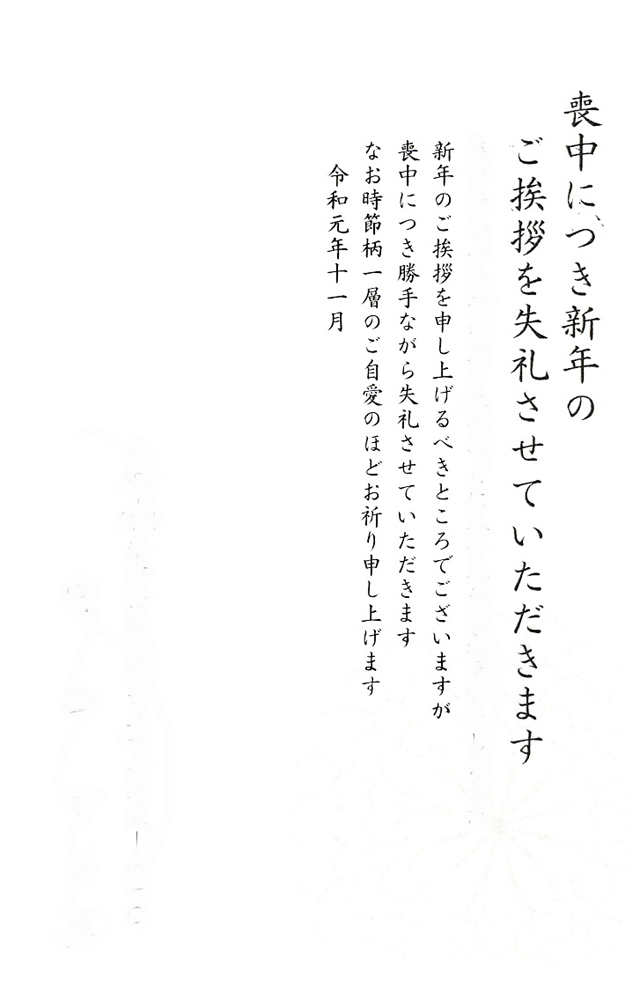 喪中につき新年の
ご挨拶を失礼させていただきます
新年のご挨拶を申し上げるべきところでございますが
喪中につき勝手ながら失礼させていただきます
なお時節柄一層のご自愛のほどお祈り申し上げます
令和元年十一月